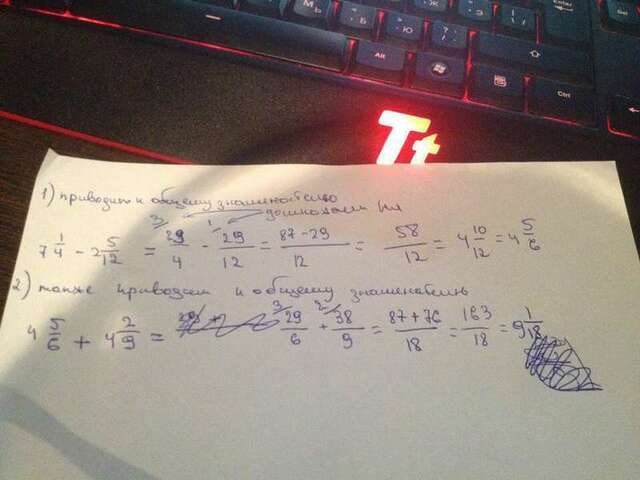 Enter
Alt
Ctrl
Tt
1) приводить к общему знаменателю
домножаем на
7 1/4 - 2 5/12 = 29/4 (3/ - 29/12 (1/ = 87-29/12 = 58/12 = 4 10/12 = 4 5/6
2) также приводим к общему знаменателю
4 5/6 + 4 2/9 = 29/6 (3/ + 38/9 (2/ = 87+76/18 = 163/18 = 9 1/18